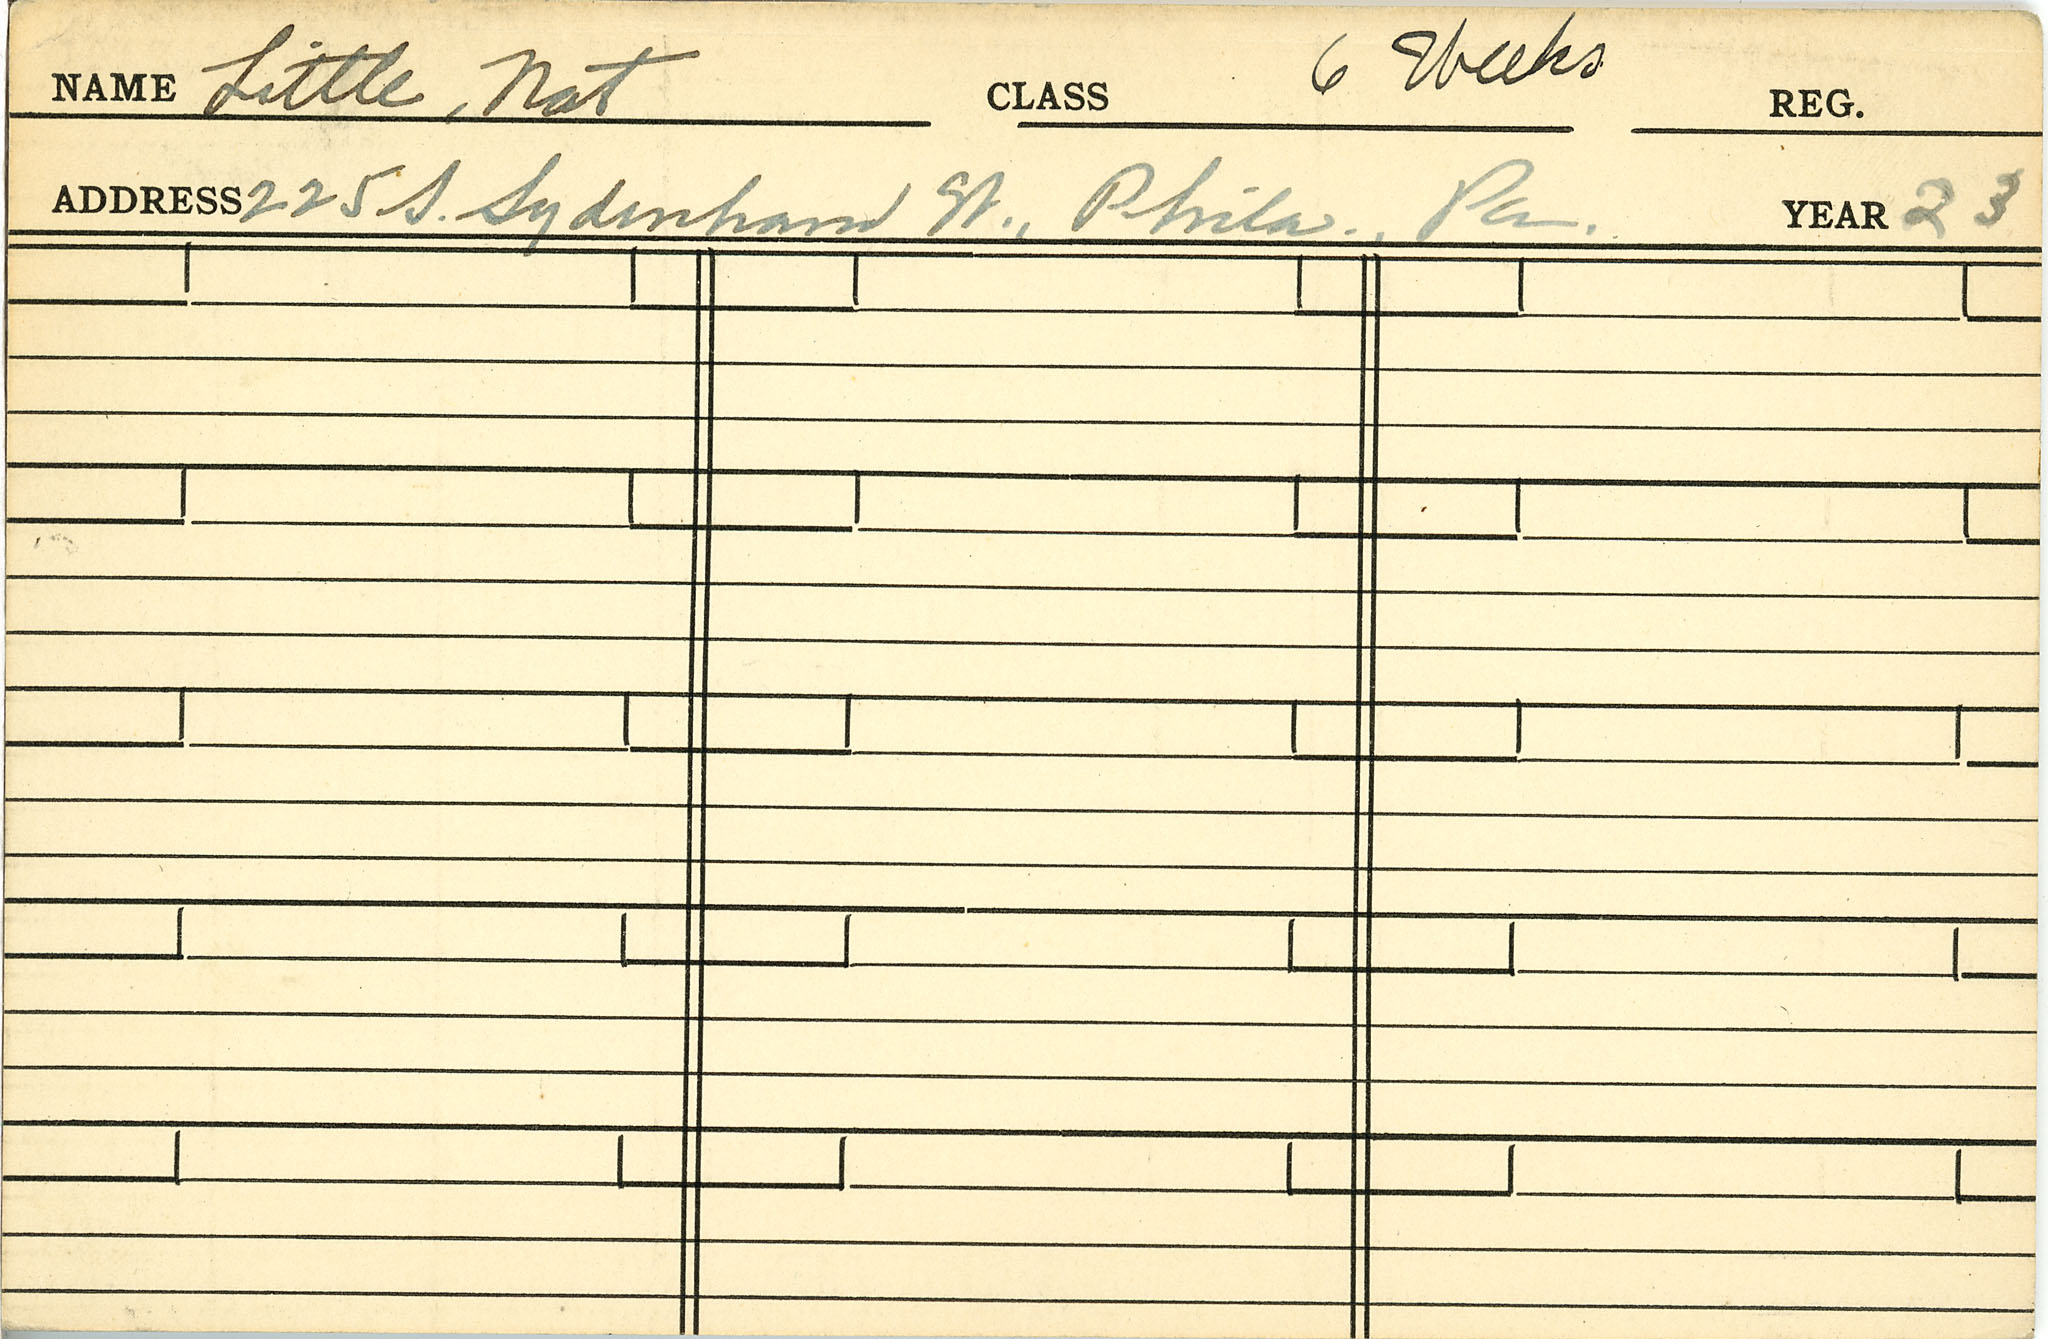 NAME Little, Nat CLASS 6 Weeks REG.
ADDRESS 225 S. Sydenham St., Phila., Pa. YEAR 23